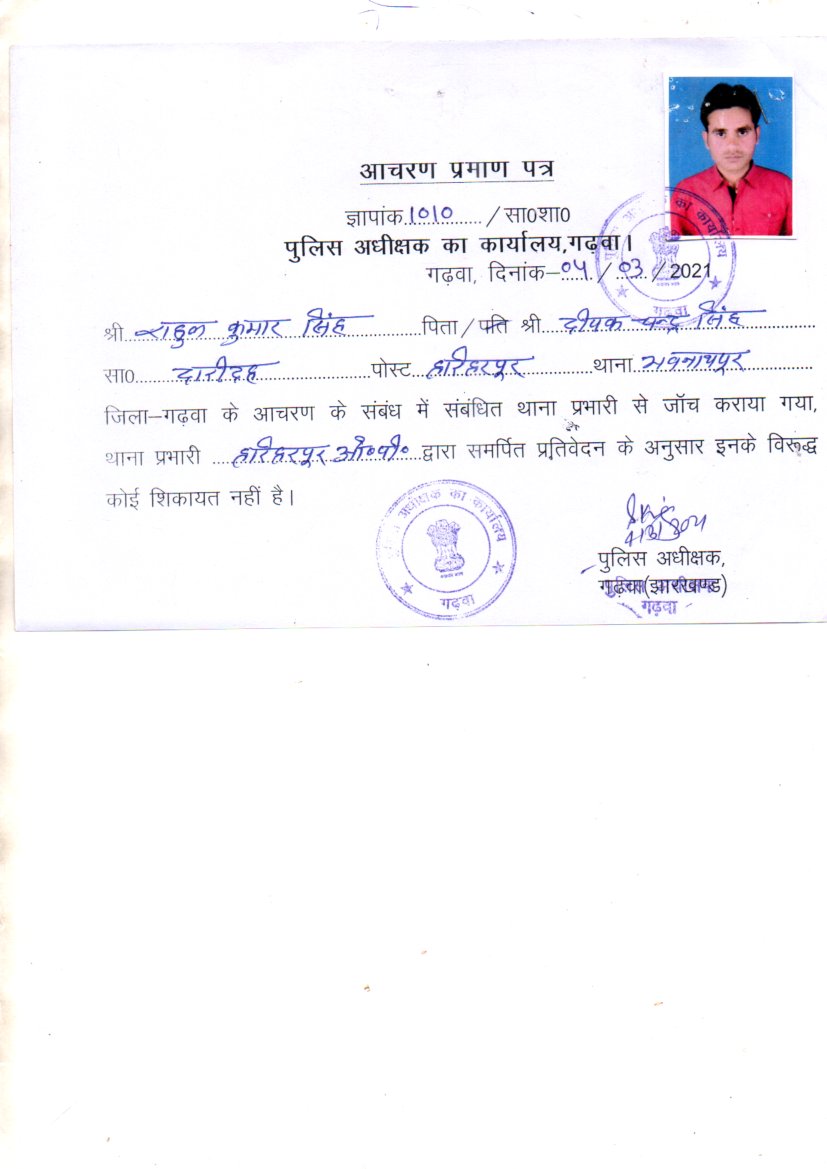 आचरण प्रमाण पत्र
ज्ञापांक 1010 / सा0शा0
पुलिस अधीक्षक का कार्यालय, गढ़वा।
गढ़वा, दिनांक–04 / 03 / 2021
श्री राहुल कुमार सिंह पिता / पति श्री दीपक चन्द्र सिंह
सा0 पोस्ट हरिहरपुर थाना भवनाथपुर
जिला–गढ़वा के आचरण के संबंध में संबंधित थाना प्रभारी से जॉंच कराया गया,
थाना प्रभारी हरिहरपुर ओ०पी० द्वारा समर्पित प्रतिवेदन के अनुसार इनके विरूद्ध
कोई शिकायत नहीं है।
अधीक्षक का कार्यालय
गढ़वा
पुलिस अधीक्षक,
गढ़वा(झारखण्ड)
गढ़वा